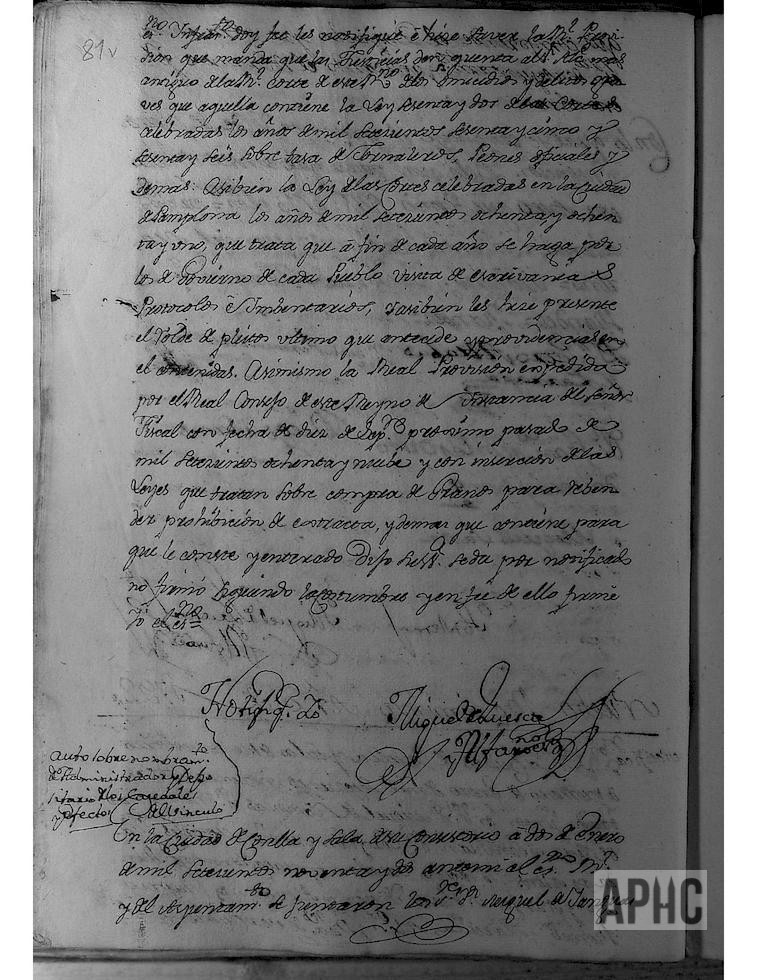 81v
no infrascto. doy fee les notifiqué e hize saver la Rl. Provi
sion que manda que las Justicias den quenta al Sr. Alc. mas
antiguo de la Rl. Corte de este Rno. de los omicidios y delitos gra
ves que aquella contiene la Ley sesenta y dos de las Cortes
celebradas los años de mil setecientos sesenta y cinco y
sesenta y seis sobre tasa de Jornaleros, Peones oficiales y
demas: Asibien la Ley de las Cortes celebradas en la Ciudad
de Pamplona los años de mil setecientos ochenta y ochen
ta y uno, que trata que a fin de cada año se haga por
los de Govierno de cada Pueblo visita de escrivanias
Protocolos e Imbentarios, y asibien les hize presente
el Rolde de pleitos ultimo que antecede y providencias en
el contenidas. Asimismo la Real Provision expedida
por el Real Consejo de este Reyno de instancia del señor
Fiscal con fecha de diez de Sepre. proximo pasado de
mil setecientos ochenta y nuebe y con insercion de las
Leyes que tratan sobre compra de Granos para reben
der prohibicion de extracta, y demas que contiene para
que le conste y enterado Dijo se da por notificado
no firmó siguiendo la costumbre y en fee de ello firmé
yo el esno.=
Notifiq. Zo
Miguel de Huesca
Alfaro esno
auto sobre nombramto.
de Administrador y depo
sitario de los Caudales
y efectos del Vinculo
En la Ciudad de Corella y Sala de su Consistorio a dos de Enero
de mil setecientos noventa y dos ante mi el esno. Rl.
y del Ayuntamto. se juntaron los Sres. Dn. Miguel de
APHC